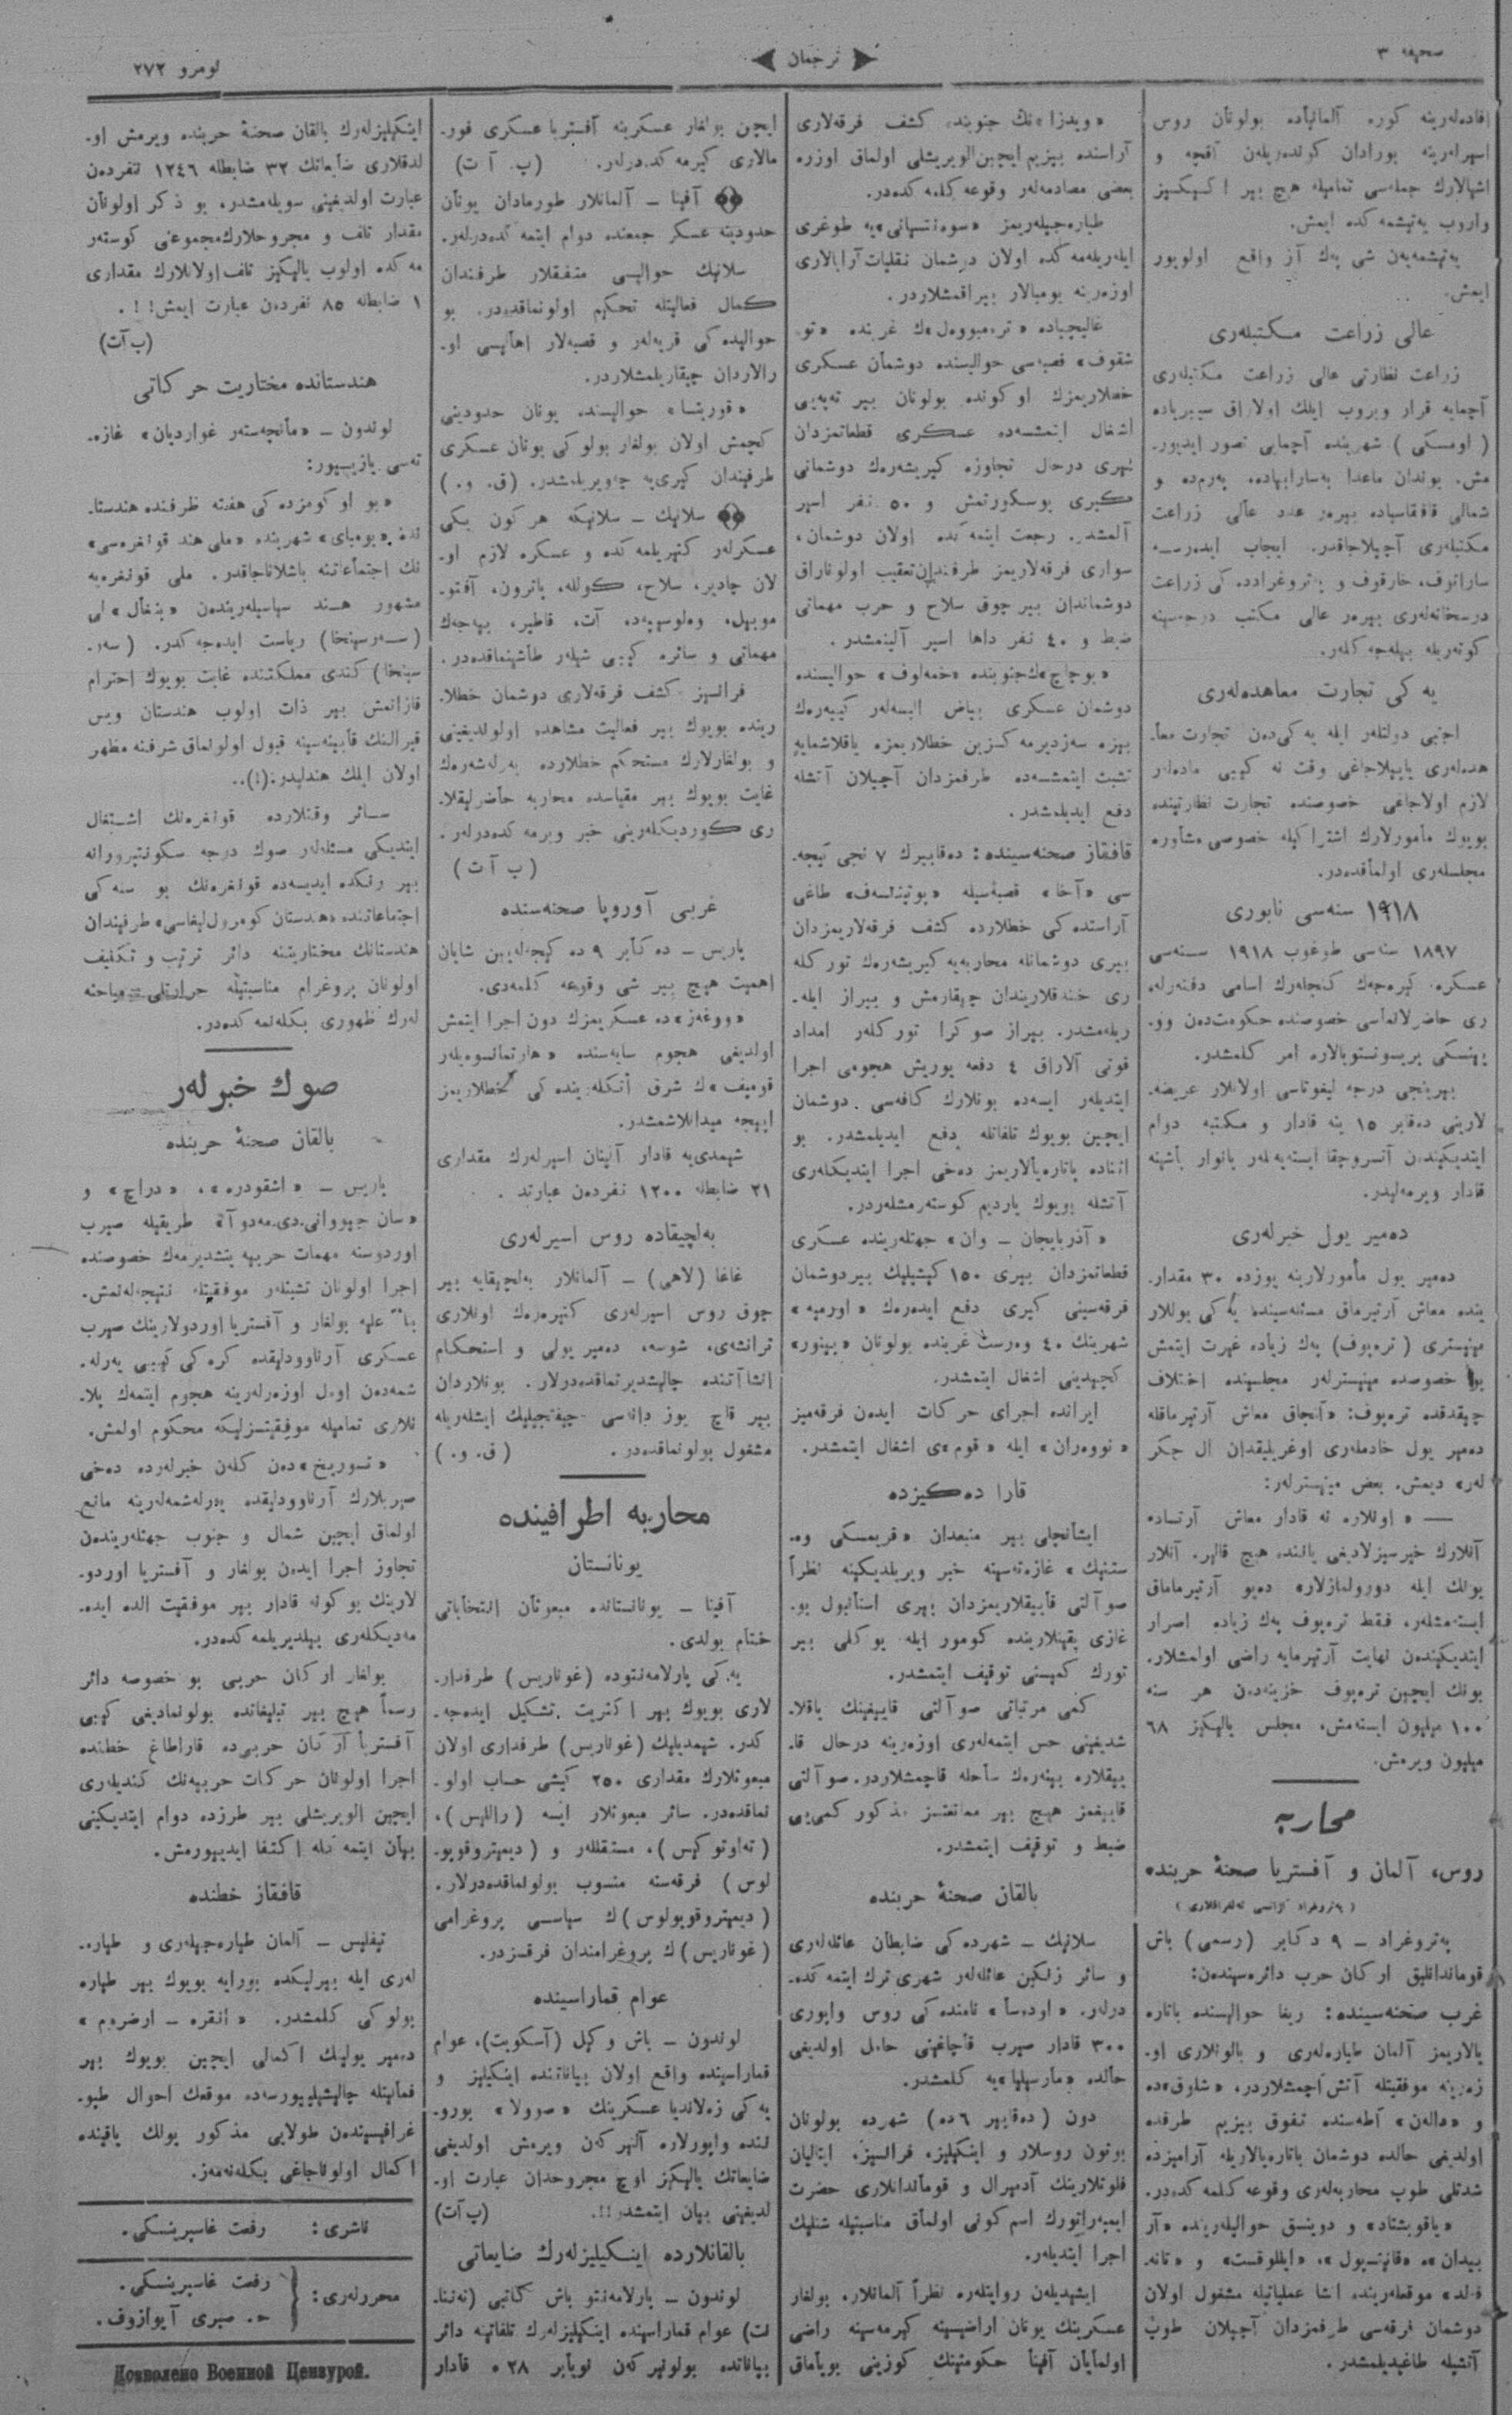 صحیفه ۳
ترجمان
نومرو ۲۷۲
افاده‌لەرینه کوره آلمانیاده بولونان روس
اسیرلەرینه بورادان کوندەریلەن آقچه و
اشیالارك جمله‌سی تمامیله هیچ بیر اکسیکسیز
واروب یەتیشمه‌کده ایمش.
یەتیشمەیەن شی پەك آز واقع اولویور
ایمش.
عالی زراعت مکتبلەری
زراعت نظارتی عالی زراعت مکتبلەری
آچمایه قرار ویروب ایلك اولاراق سیبیریاده
(اومسکی) شهرینده آچمایی تصور ایدیور-
مش. بوندان ماعدا بەسارابیاده، پەرم‌ده و
شمالی قافقاسیاده بیرەر عدد عالی زراعت
مکتبلەری آچیلاجاقدر. ایجاب ایدەرسه
ساراتوف، خارقوف و پەتروغراددە کی زراعت
درسخانه‌لەری بیرەر عالی مکتب درجه‌سینه
کوتەریله بیله‌جه‌کلەر.
یەکی تجارت معاهده‌لەری
اجنبی دولتلەر ایله یەکی‌دن تجارت معا-
هده‌لەری یاپیلاجاغی وقت نه کیبی ماده‌لەر
لازم اولاجاغی خصوصنده تجارت نظارتینده
بویوك مأمورلارك اشتراکیله خصوصی مشاوره
مجلسلەری اولماقده‌در.
۱۹۱۸ سنه‌سی نابوری
۱۸۹۷ سنه‌سی طوغوب ۱۹۱۸ سنه‌سی
عسکره کیره‌جەك کنجلەرك اسامی دفتەرلە-
ری حاضرلانماسی خصوصنده حکومت‌دەن وو-
یینسکی پریسوتستویالاره امر کلمشدر.
بیرینجی درجه لیغوتاسی اولانلار عریضه-
لارینی ده‌قابر ۱۵ ینه قادار و مکتبه دوام
ایتدیکیندن آتسروچقا ایسته‌یه‌نلەر یانوار باشینه
قادار ویرمه‌لیدر.
دەمیر یول خبرلەری
دەمیر یول مأمورلارینه یوزده ۳۰ مقدار-
ینده معاش آرتیرماق مسئله‌سینده یەکی یوللار
مینیستری (ترەپوف) پەك زیاده غیرت ایتمش
بو خصوصده مینیسترلەر مجلسینده اختلاف
چیقدقده ترەپوف: «آنجاق معاش آرتیرماقله
دەمیر یول خادملەری اوغریلیقدان ال چکر
لەر» دیمش. بعض مینیسترلەر:
— «اونلاره نه قادار معاش آرتساده
آنلارك خیرسیزلادیغی یانینده هیچ قالیر. آنلار
بونك ایله دورولمازلار» دەیو آرتیرماماق
ایسته‌مشلەر، فقط ترەپوف پەك زیاده اصرار
ایتدیکیندەن نهایت آرتیرمایه راضی اولمشلار.
بونك ایچین ترەپوف خزینه‌دەن هر سنه
۱۰۰ میلیون ایستەمش، مجلس یالیکز ۶۸
میلیون ویرمش.
محاربه
روس، آلمان و آفستریا صحنۀ حربنده
(پەتروغراد آژانسی تەلغرافلاری)
پەتروغراد — ۹ دکابر (رسمی) باش
قوماندانلیق ارکان حرب دائره‌سیندەن:
غرب صحنه‌سینده: ریغا حوالیسنده باتاره
یالاریمز آلمان طیاره‌لەری و بالونلاری او-
زەرینه موفقیتله آتش آچمشلاردر. «شلوق»ده
و «دالەن» آطه‌سنده تفوق بیزیم طرفده
اولدیغی حالده دوشمان باتاریالاریله آرامیزده
شدتلی طوپ محاربه‌لەری وقوعه کلمه‌کده‌در.
«یاقوبشتاد» و دوینسق حوالیلەرینده «آر
بیدان»، «قاپنسیول»، «ایللوقست» و «تانه-
فلد» موقعلەرینده انشا عملیاتیله مشغول اولان
دوشمان فرقه‌سی طرفمزدان آچیلان طوپ
آتشیله طاغیدیلمشدر.
«ویدزا»نك جنوبنده کشف فرقه‌لاری
آراسنده بیزیم ایچین الویریشلی اولماق اوزره
بعضی مصادمه‌لەر وقوعه کلمه‌کده‌در.
طیاره‌جیلەریمز «سوه‌نتسیانی»یه طوغری
ایلەریله‌مه‌کده اولان دوشمان نقلیات آرابالاری
اوزەرینه بومبالار بیراقمشلاردر.
غالیچیاده «ترەمبوول»ك غربنده «تو-
شقوف» قصبه‌سی حوالیسنده دوشمان عسکری
خطلاریمزك اوکونده بولونان بیر تەپەیی
اشغال ایتمشسه‌ده عسکری قطعاتمزدان
بیری درحال تجاوزه کیریشەرەك دوشمانی
کیری پوسکورتمش و ۵۰ نفر اسیر
آلمشدر. رجعت ایتمه‌کده اولان دوشمان،
سواری فرقه‌لاریمز طرفندان تعقیب اولوناراق
دوشماندان بیر چوق سلاح و حرب مهماتی
ضبط و ۴۰ نفر داها اسیر آلینمشدر.
«بوچاچ»ك جنوبنده «خمه‌لوف» حوالیسنده
دوشمان عسکری بیاض البسه‌لەر کییەرەك
بیزه سەزدیرمه‌کسزین خطلاریمزه یاقلاشمایه
تشبث ایتمشسه‌ده طرفمزدان آچیلان آتشله
دفع ایدیلمشدر.
قافقاز صحنه‌سینده: ده‌قابیرك ۷ نجی گیجه-
سی «آخا» قصبه‌سیله طاغی
آراسنده‌کی خطلارده کشف فرقه‌لاریمزدان
بیری دوشمانله محاربه‌یه کیریشەرەك تورکله
ری خندقلاریندان چیقارمش و بیراز ایله-
ریلەمشدر. بیراز صوکرا تورکلەر امداد
قوتی آلاراق ٤ دفعه یوریش هجومی اجرا
ایتدیلەر ایسه‌ده بونلارك کافه‌سی دوشمان
ایچین بویوك تلفاتله دفع ایدیلمشدر. بو
اثناده باتاریالاریمز دەخی اجرا ایتدیکلەری
آتشله بویوك یاردیم کوستەرمشلەردر.
«آذربایجان — وان» جهتلەرینده عسکری
قطعاتمزدان بیری ۱۵۰ کیشیلیك بیر دوشمان
فرقه‌سینی کیری دفع ایدەرەك «اورمیه»
شهرینك ۴۰ وەرست غربنده بولونان
کچیدینی اشغال ایتمشدر.
ایرانده اجرای حرکات ایدەن فرقه‌میز
«نووەران» ایله «قوم»ی اشغال ایتمشدر.
قارا دەکیزده
اینانچلی بیر منبعدان «قریمسکی وه-
ستنیك» غازەته‌سینه خبر ویریلدیکینه نظراً
صو آلتی قاییقلاریمزدان بیری استانبول بو-
غازی یقینلارینده کومور ایله یوکلی بیر
تورك کمیسنی توقیف ایتمشدر.
کمی مرتباتی صو آلتی قاییغینك یاقلا-
شدیغینی حس ایتمه‌لەری اوزەرینه درحال قا-
ییقلاره بینەرەك ساحله قاچمشلاردر. صو آلتی
قاییغمز هیچ بیر ممانعتسز مذکور کمی‌یی
ضبط و توقیف ایتمشدر.
بالقان صحنۀ حربنده
سلانیك — شهرده‌کی ضابطان عائله‌لەری
و سائر زنکین عائله‌لەر شهری ترك ایتمه‌کده-
درلەر. «اودەسا» نامنده‌کی روس واپوری
۳۰۰ قادار صیرب قاچاغینی حامل اولدیغی
حالده «مارسیلیا»یه کلمشدر.
دون (ده‌قابیر ۶ده) شهرده بولونان
بوتون روسلار و اینکیلیز، فرانسیز، ایتالیان
فلوتلارینك آدمیرال و قوماندانلاری حضرت
ایمپه‌راتورك اسم کونی اولماق مناسبتیله شنلیك
اجرا ایتدیلەر.
ایشیدیلەن روایتلەره نظراً آلمانلار، بولغار
عسکرینك یونان اراضیسینه کیرمه‌سینه راضی
اولمایان آفینا حکومتینك کوزینی بویاماق
ایچن بولغار عسکرینه آفستریا عسکری فور-
مالاری کیرمه‌کده‌درلەر. (پ آ ت)
آفینا — آلمانلار طورمادان یونان
حدودینه عسکر جمعنده دوام ایتمه‌کده‌درلەر.
سلانیك حوالیسی متفقلار طرفندان
کمال فعالیتله تحکیم اولونماقده‌در. بو
حوالیده‌کی قریه‌لەر و قصبه‌لار اهالیسی او-
رالاردان چیقاریلمشلاردر.
«قوریتسا» حوالیسنده یونان حدودینی
کچمش اولان بولغار بولوکی یونان عسکری
طرفیندان کیری‌یه چەویریلمشدر. (ق. و.)
سلانیك — سلانیکه هر کون یکی
عسکرلەر کتیریلمه‌کده و عسکره لازم او-
لان چادیر، سلاح، کولله، پاترون، آفتو-
موبیل، وه‌لوسیپه‌د، آت، قاطیر، ییه‌جەك
مهماتی و سائره کیبی شیلەر طاشینماقده‌در.
فرانسیز کشف فرقه‌لاری دوشمان خطلا-
رینده بویوك بیر فعالیت مشاهده اولولدیغینی
و بولغارلارك مستحکم خطلارده یەرلەشەرەك
غایت بویوك بیر مقیاسده محاربه حاضرلیقلا-
ری کوردیکلەرینی خبر ویرمه‌کده‌درلەر.
(پ آ ت)
غربی آوروپا صحنه‌سنده
پاریس — ده‌کابر ۹ ده کیجه‌له‌یین شایان
اهمیت هیچ بیر شی وقوعه کلمه‌دی.
«ووغەز»ده عسکریمزك دون اجرا ایتمش
اولدیغی هجوم سایه‌سنده «هارتمانسوه‌یلەر
قومیف»ك شرق أتکلەرینده‌کی خطلاریمز
ایپجه میدانلاشمشدر.
شیمدی‌یه قادار آلینان اسیرلەرك مقداری
۲۱ ضابطله ۱۲۰۰ نفردەن عبارتدر.
بەلچیقاده روس اسیرلەری
غاغا (لاهی) — آلمانلار بەلچیقایه بیر
چوق روس اسیرلەری کتیرەرەك اونلاری
ترانشه‌ی، شوسه، دەمیر یولی و استحکام
انشاآتنده چالیشدیرتماقده‌درلار. بونلاردان
بیر قاچ یوز دانه‌سی چیفتجیلیك ایشلەریله
مشغول بولونماقده‌در. (ق. و.)
محاربه اطرافینده
یونانستان
آفینا — یونانستانده مبعوثان انتخاباتی
ختام بولدی.
یەکی پارلامه‌نتوده (غوناریس) طرفدار-
لاری بویوك بیر اکثریت تشکیل ایده‌جه-
کدر. شیمدیلیك (غوناریس) طرفداری اولان
مبعوثلارك مقداری ۲۵۰ کیشی حساب اولو-
نماقده‌در. سائر مبعوثلار ایسه (راللیس)،
(تەاوتوکیس)، مستقللەر و (دیمیتروقوپو-
لوس) فرقه‌سنه منسوب بولونماقده‌درلار.
(دیمیتروقوپولوس)ك سیاسی پروغرامی
(غوناریس)ك پروغرامندان فرقسزدر.
عوام قماراسینده
لوندون — باش وکیل (آسکویت)، عوام
قماراسینده واقع اولان بیاناتنده اینکیلیز و
یەکی زه‌لاندیا عسکرینك «سوولا» بورو-
ننده واپورلاره آلنیرکەن ویرمش اولدیغی
ضایعاتك یالیکز اوچ مجروحدان عبارت او-
لدیغنی بیان ایتمشدر!!. (پ آت)
بالقانلارده اینکیلیزلەرك ضایعاتی
لوندون — پارلامه‌نتو باش کاتبی (تەننا-
نت) عوام قماراسینده اینکیلیزلەرك تلفاتینه دائر
بیاناتده بولونیرکەن نویابر ۲۸ ه قادار
اینکیلیزلەرك بالقان صحنۀ حربنده ویرمش او-
لدقلاری ضایعاتك ۳۲ ضابطله ۱۲۴۶ نفردەن
عبارت اولدیغینی سویله‌مشدر. بو ذکر اولونان
مقدار تلف و مجروحلارك مجموعنی کوستەر
مه‌کده اولوب یالیکز تلف اولانلارك مقداری
۱ ضابطله ۸۵ نفردەن عبارت ایمش!!.
(پ آت)
هندستانده مختاریت حرکاتی
لوندون — «مانچه‌ستەر غواردیان» غازه-
ته‌سی یازییور:
«بو اوکومزده‌کی هفته ظرفنده هندستا-
نده «بومبای» شهرینده «ملی هند قونغره‌سی»
نك اجتماعاتنه باشلاناجاقدر. ملی قونغره‌یه
مشهور هند سیاسیلەریندەن «بنغال»لی
(سەرسینخا) ریاست ایده‌جه‌کدر. (سەر-
سینخا) کندی مملکتنده غایت بویوك احترام
قازانمش بیر ذات اولوب هندستان ویس
قیرالنك قابینه‌سینه قبول اولونماق شرفنه مظهر
اولان الك هندلیدر.(!)..
سائر وقتلارده قونغره‌نك اشتغال
ایتدیکی مسئله‌لەر صوك درجه سکونتپرورانه
بیر رنکده ایدیسه‌ده قونغره‌نك بو سنه‌کی
اجتماعاتنده «هندستان کومرول لیغاسی» طرفیندان
هندستانك مختاریتنه دائر ترتیب و تکلیف
اولونان پروغرام مناسبتیله حرارتلی مباحثه
لەرك ظهوری بکله‌نمه‌کده‌در.
صوك خبرلەر
بالقان صحنۀ حربنده
پاریس — «اشقودره»، «دراچ» و
«سان جیووانی‌دی‌مه‌دوآ» طریقیله صیرب
اوردوسنه مهمات حربیه یتشدیرمەك خصوصنده
اجرا اولونان تشبثلەر موفقیتله نتیجه‌له‌نمش.
بناءً علیه بولغار و آفستریا اوردولارینك صیرب
عسکری آرناوودلیقده کره‌کی کیبی یەرلە-
شمه‌دەن اول اوزەرلەرینه هجوم ایتمەك پلا-
نلاری تمامیله موفقیتسزلیکه محکوم اولمش.
«تسوریخ»دەن کلەن خبرلەرده دەخی
صیربلارك آرناوودلیقده یەرلەشمەلەرینه مانع
اولماق ایچین شمال و جنوب جهتلەریندەن
تجاوز اجرا ایدەن بولغار و آفستریا اوردو-
لارینك بو کونه قادار بیر موفقیت الده ایده-
مه‌دیکلەری بیلدیریلمه‌کده‌در.
بولغار ارکان حربی بو خصوصه دائر
رسماً هیچ بیر تبلیغاتده بولونمادیغی کیبی
آفستریا ارکان حربی‌ده قاراطاغ خطنده
اجرا اولونان حرکات حربیه‌نك کندیلەری
ایچین الویریشلی بیر طرزده دوام ایتدیکینی
بیان ایتمه‌کله اکتفا ایدیورمش.
قافقاز خطنده
تیفلیس — آلمان طیاره‌جیلەری و طیاره-
لەری ایله بیرلیکده بورایه بویوك بیر طیاره
بولوکی کلمشدر. «انقره — ارضروم»
دەمیر یولینك اکمالی ایچین بویوك بیر
فعالیتله چالیشیلیورسه‌ده موقعك احوال طبو-
غرافیسیندەن طولایی مذکور یولك یاقینده
اکمال اولوناجاغی بکله‌نەمز.
ناشری: رفعت غاسپرینسکی.
محررلەری: رفعت غاسپرینسکی.
ح. صبری آیوازوف.
Дозволено Военной Цензурой.